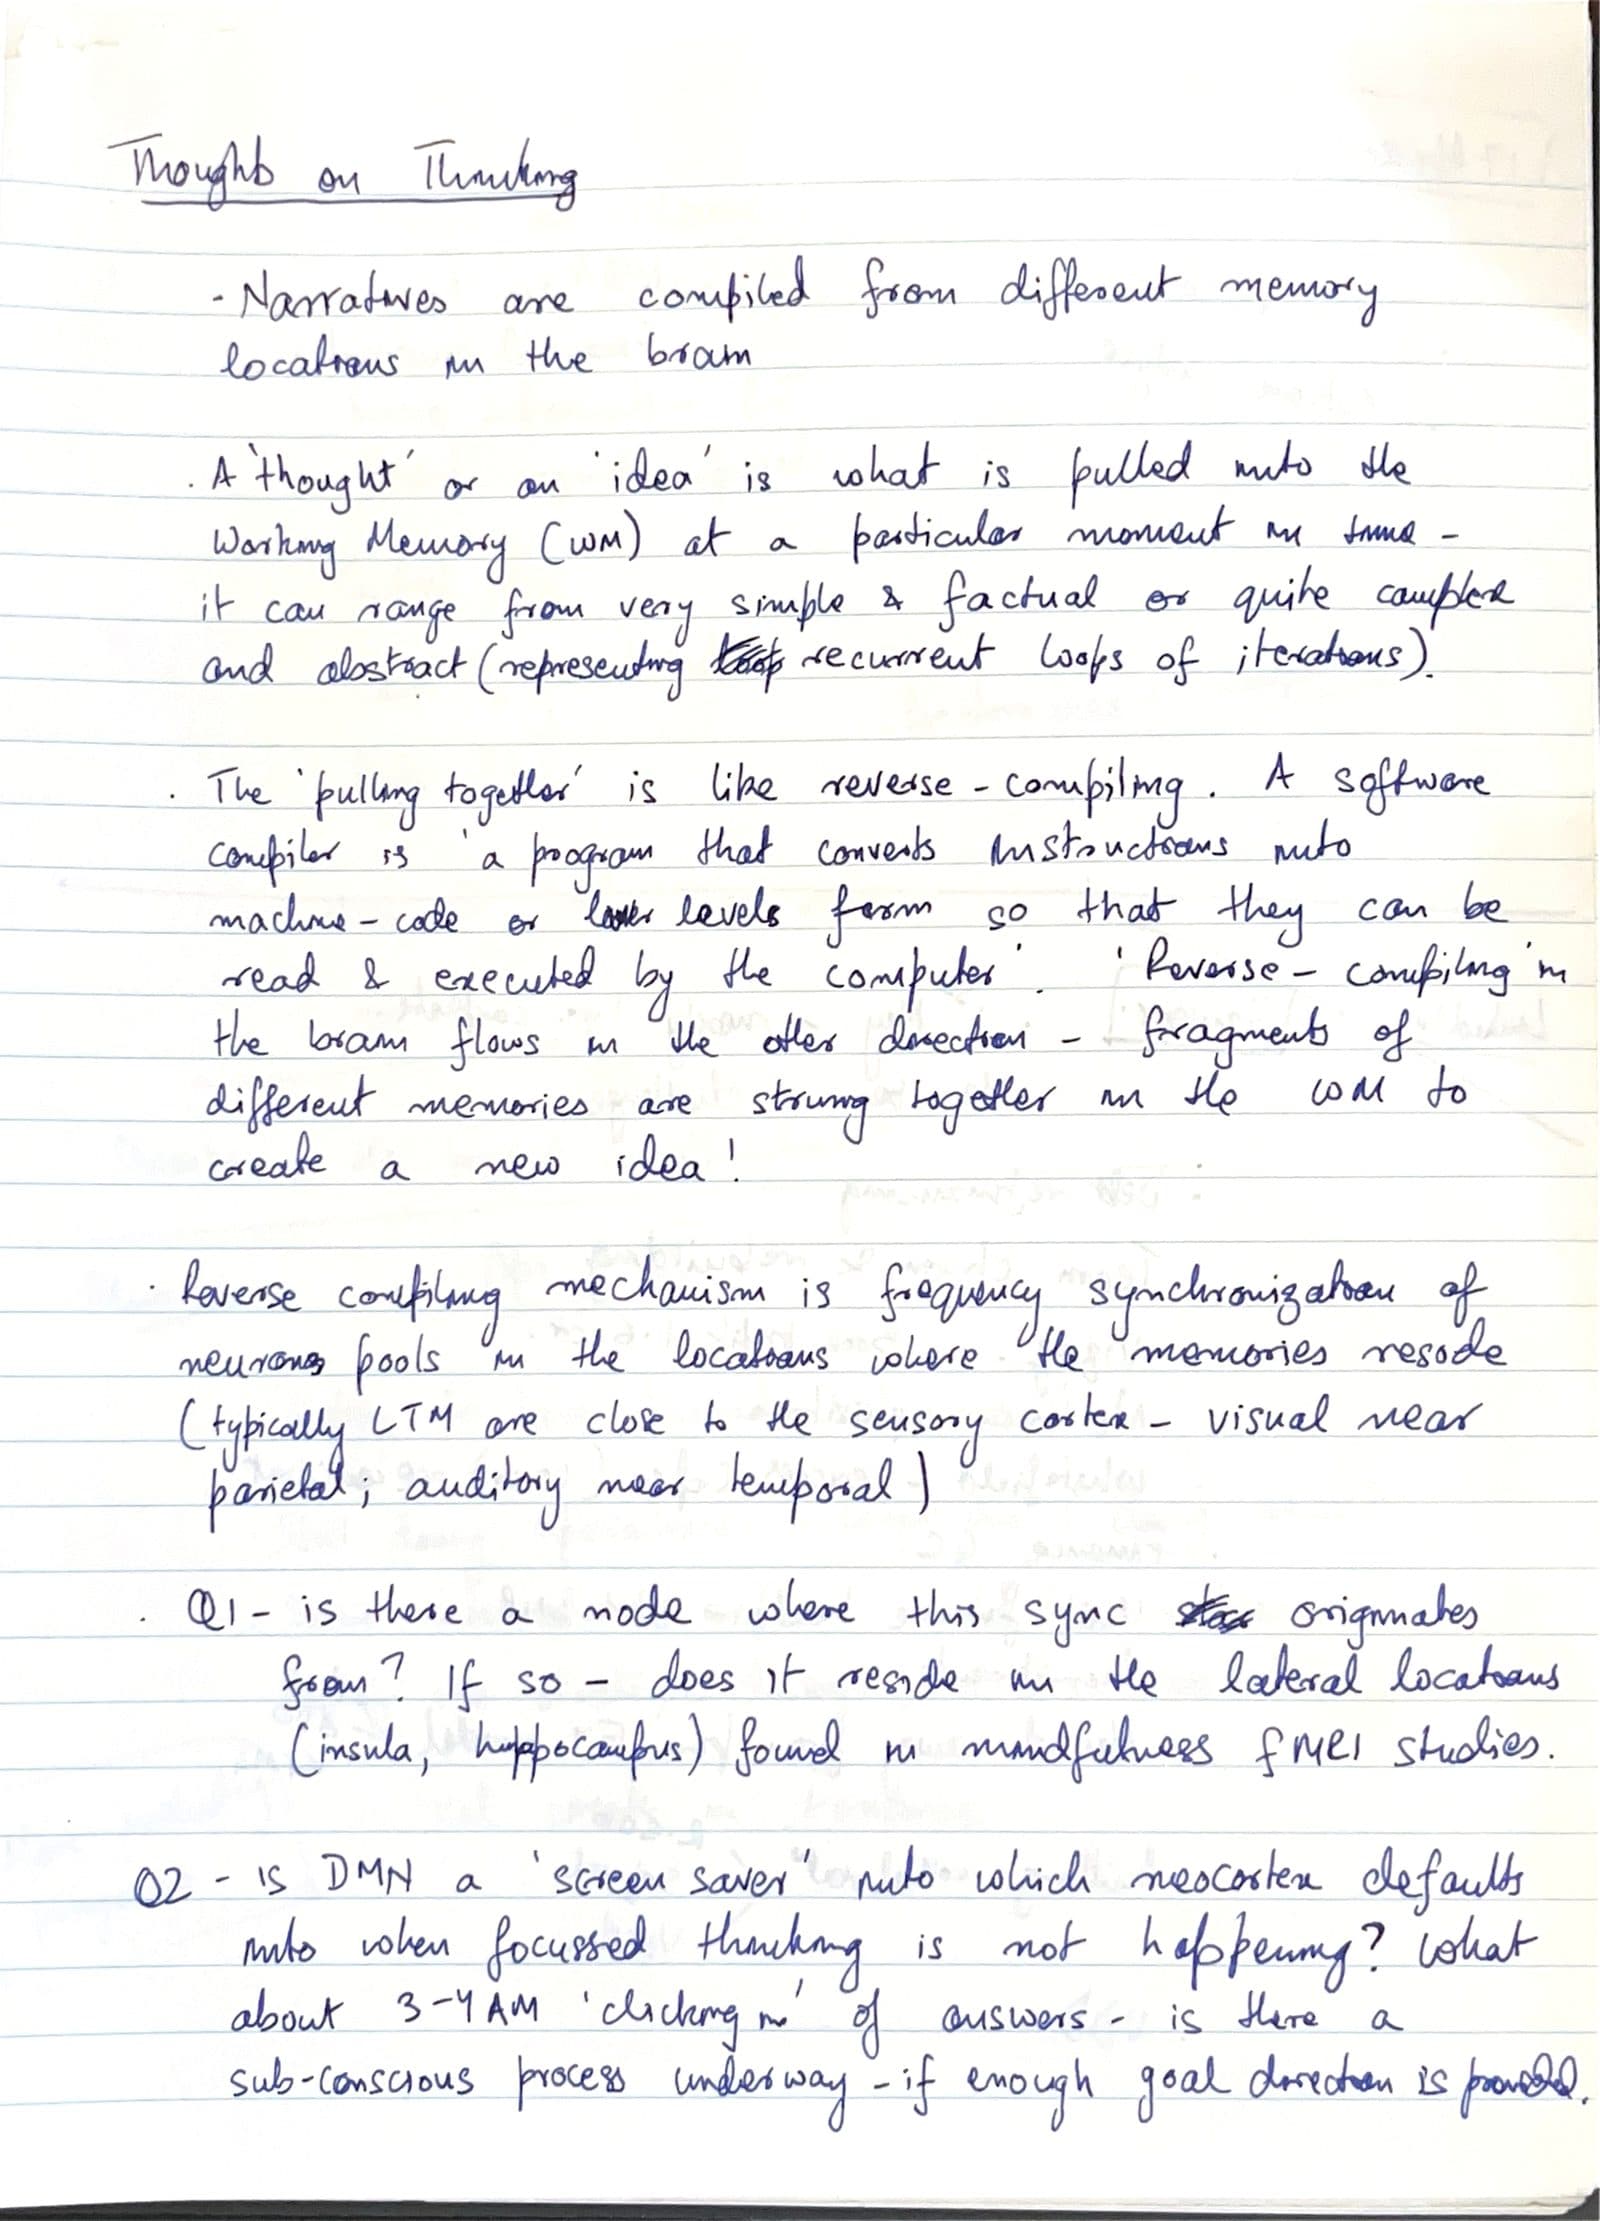 Thoughts on Thinking
- Narratives are compiled from different memory
locations in the brain
. A 'thought' or an 'idea' is what is pulled into the
Working Memory (WM) at a particular moment in time -
it can range from very simple & factual or quite complex
and abstract (representing recurrent loops of iterations).
. The 'pulling together' is like reverse - compiling. A software
compiler is 'a program that converts instructions into
machine - code or lower levels form so that they can be
read & executed by the computer'. 'Reverse - compiling' in
the brain flows in the other direction - fragments of
different memories are strung together in the WM to
create a new idea!
. Reverse compiling mechanism is frequency synchronization of
neurons pools in the locations where the memories reside
(typically LTM are close to the sensory cortex - visual near
parietal; auditory near temporal)
. Q1 - is there a node where this sync originates
from? If so - does it reside in the lateral locations
(insula, hippocampus) found in mindfulness fMRI studies.
Q2 - is DMN a 'screen saver' into which neocortex defaults
into when focussed thinking is not happening? What
about 3-4 AM 'clicking in' of answers - is there a
sub-conscious process underway - if enough goal direction is provided.